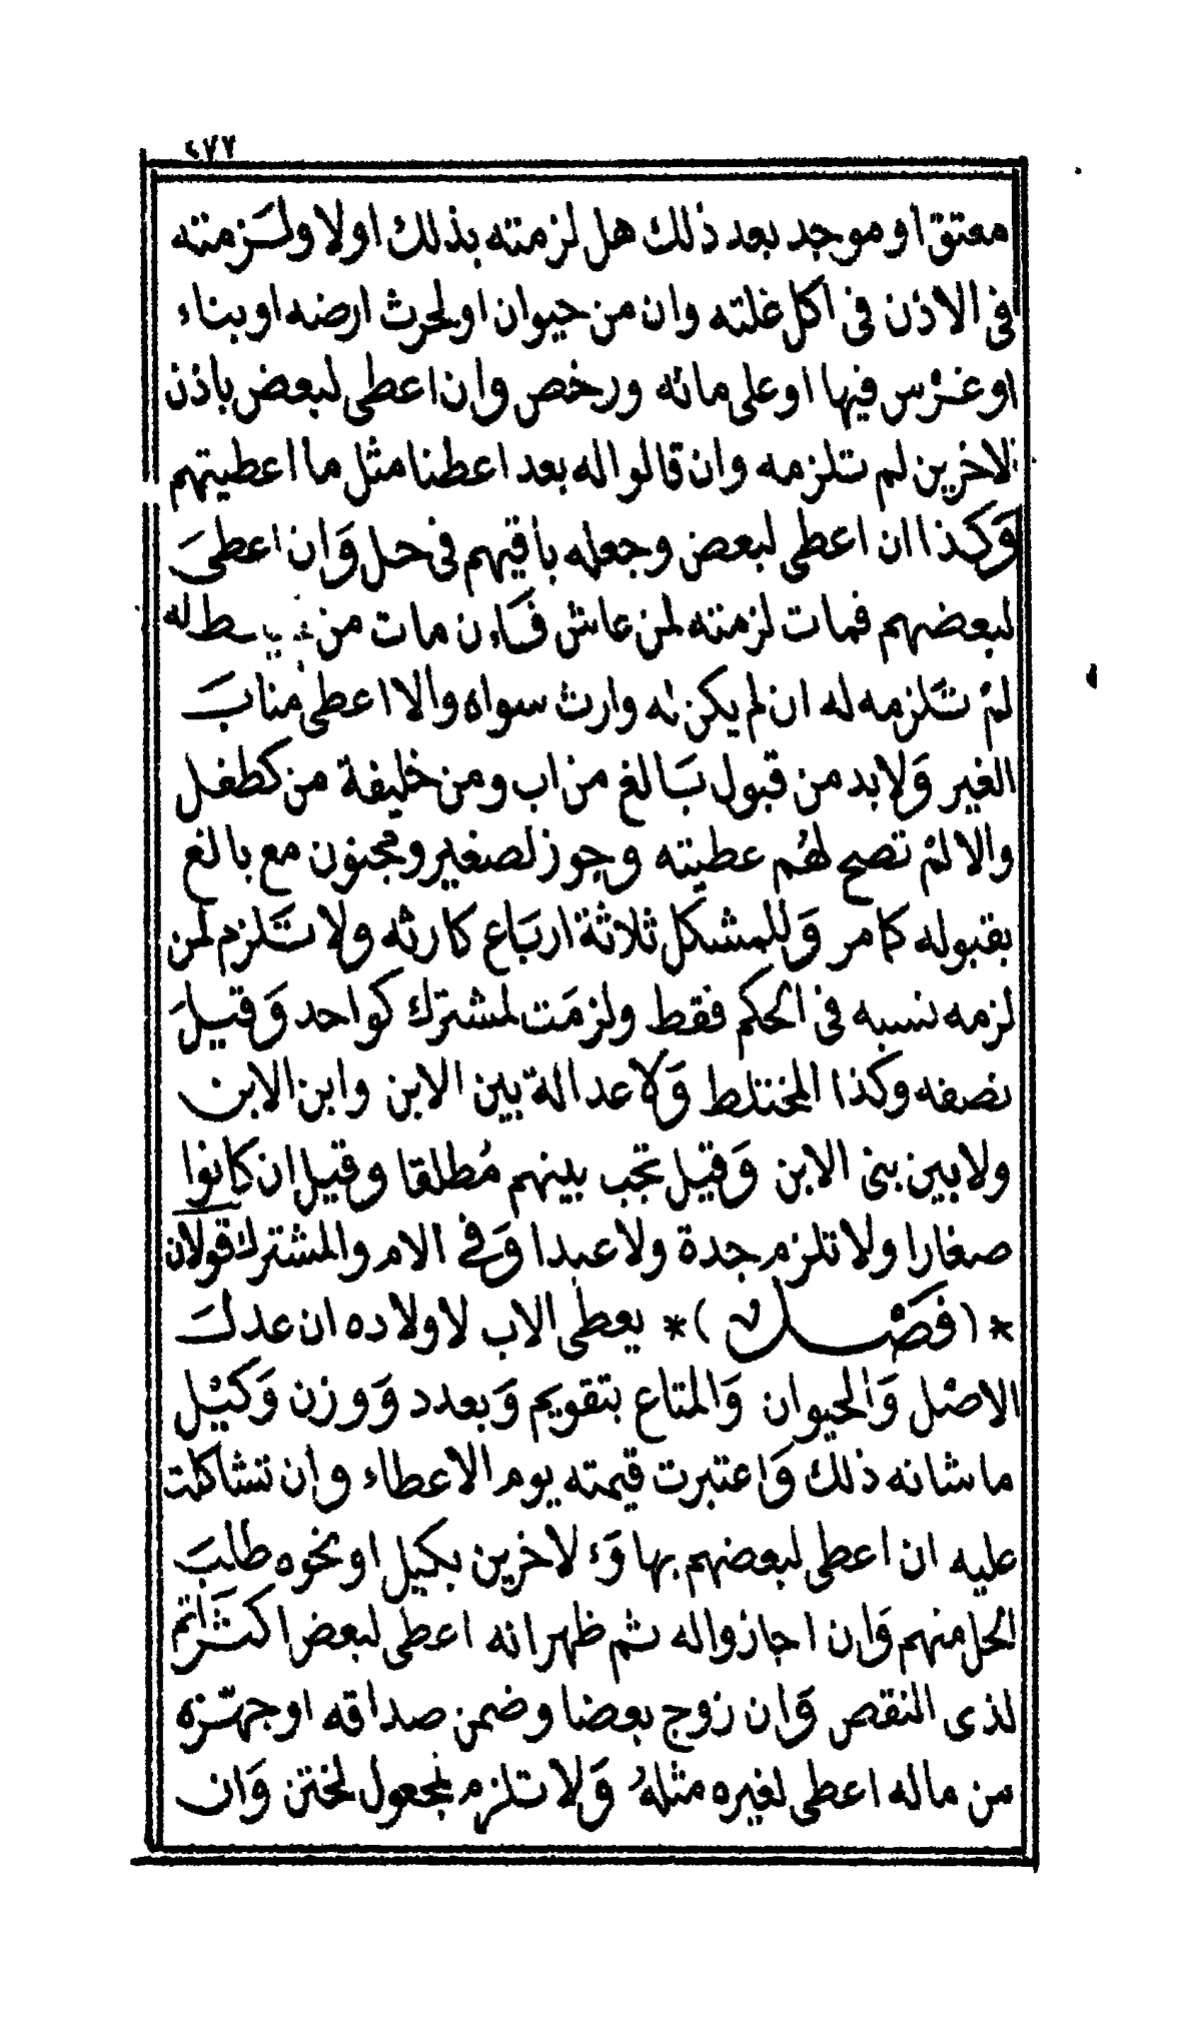 ٤٧٧
معتق او موجد بعد ذلك هل لزمته بذلك اولا ولزمته
فى الاذن فى اكل غلته وان من حيوان او لحرث ارضه او بناء
او غرْس فيها او على مائه ورخص وان اعطى لبعض باذن
لاخرين لم تلزمه وان قالوا له بعد اعطنا مثل ما اعطيتهم
وَكذا ان اعطى لبعض وجعله باقيهم فى حل وَان اعطىَ
لبعضهم فمات لزمته لمن عاش فَاِن مات من له
لمْ تَلزمه له ان لم يكن له وارث سواه والا اعطى منابَ
الغير وَلابد من قبول بَالغ من اب ومن خليفة من كطفل
والا لمْ تصح لهُم عطيته وجوز لصغير ومجنون مع بالغ
بقبوله كما مر وَللمشكل ثلاثة اربَاع كارثه ولا تَلزم لمن
لزمه نسبه فى الحكم فقط ولزمَت لمشترك كواحد وَقيلَ
نصفه وكذا المختلط وَلا عدالة بين الابن وابن الابن
ولا بين بنى الابن وَقيل تجب بينهم مُطلقا وقيل ان كانوا
صغارا ولا تلزم جدة ولا عبدا وَفى الام والمشترك قولان
*(فَصْل)* يعطى الاب لاولاده ان عدلَ
الاصْل وَالحيوان وَالمتاع بتقويم وَبعدد وَوزن وَكيْل
ما شانه ذلك وَاعتبرت قيمته يوم الاعطاء وان تشاكلت
عليه ان اعطى لبعضهم بها وَلاخرين بكيل او نحوه طلبَ
الحل منهم وَان اجازوا له ثم ظهر انه اعطى لبعض اكثَر اتم
لذى النقص وَان زوج بعضا وضمن صداقه او جهّزه
من ماله اعطى لغيره مثلهُ وَلا تلزم بمجعول لختن وَان